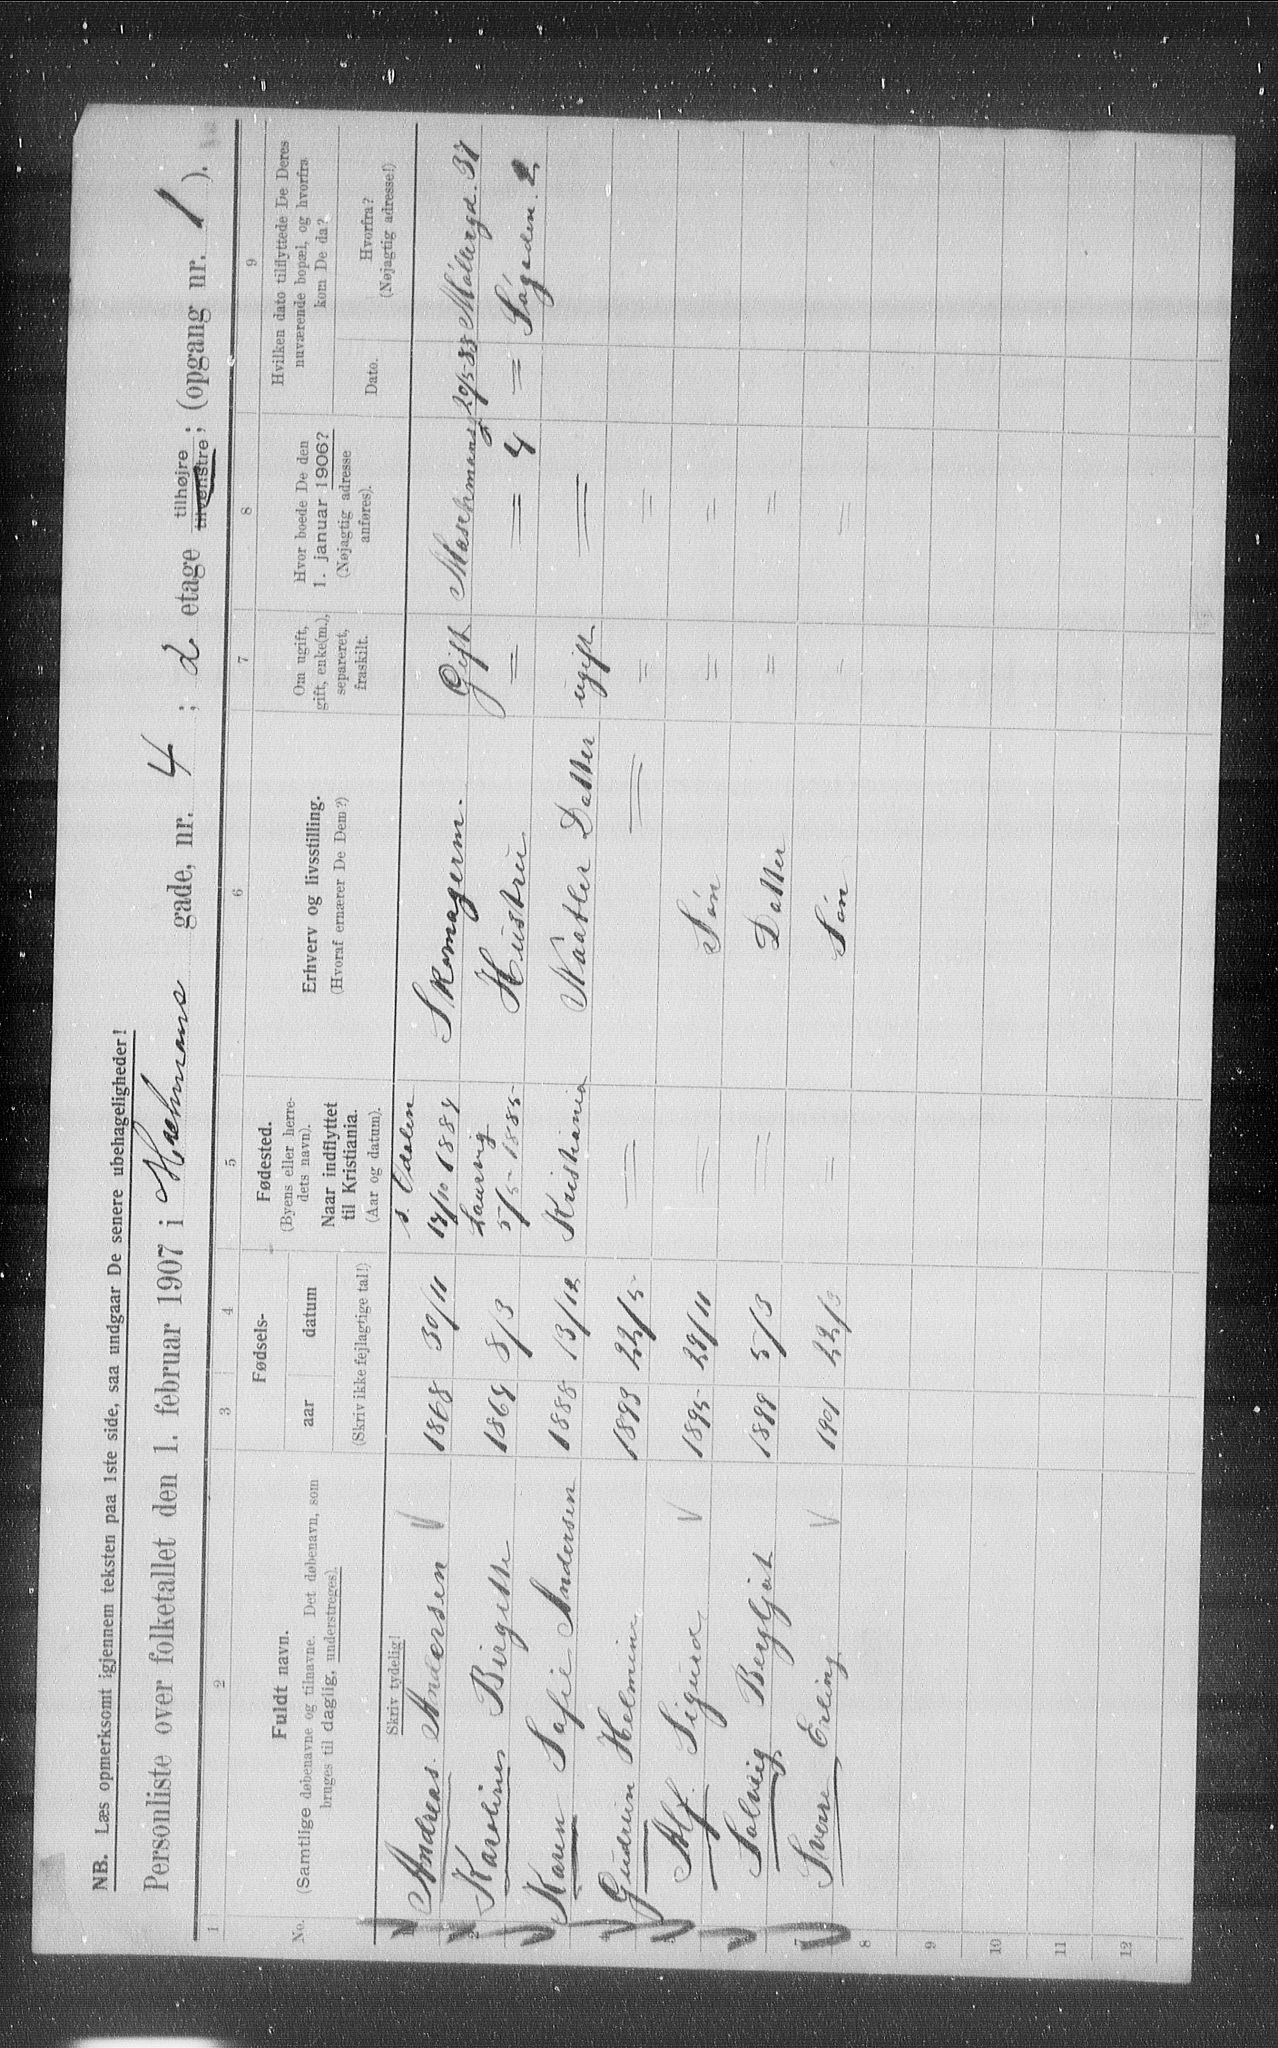 NB. Læs opmerksomt igjennem teksten paa 1ste side, saa undgaar De senere ubehageligheder!
Personliste over folketallet den 1. februar 1907 i gade, nr. 4 ; 2 etage tilhøjre tilvenstre ; (opgang nr. 1 ).
1 2 3 4 5 6 7 8 9
No. Fuldt navn. (Samtlige døbenavne og tilnavne. Det døbenavn, som bruges til daglig, understreges).
Fødsels- aar datum
(Skriv ikke fejlagtige tal!)
Fødested. (Byens eller herredets navn). Naar indflyttet til Kristiania. (Aar og datum).
Erhverv og livsstilling. (Hvoraf ernærer De Dem?)
Om ugift, gift, enke(m.), separeret, fraskilt.
Hvor boede De den 1. januar 1906? (Nøjagtig adresse anføres).
Hvilken dato tilflyttede De Deres nuværende bopæl, og hvorfra kom De da?
Dato. Hvorfra? (Nøjagtig adresse!)
Skriv tydelig!
1 Andreas Andersen V 1868 30/11 s. Odalen Skomagerm. Gift Maschmansg 4 Møllergd. 37
2 Karoline Birgitte 1868 8/3 Laurvig 5/5-1885 Hustru = = = Søgaden. 2
3 Karen Sofie Andersen 1888 13/12 Kristiania Datter ugift =
4 Gudrun Helmine 1893 22/5 = = = =
5 Alf Sigurd V 1895 28/11 = Søn = =
6 Solveig Bergljot 5/3 = Datter = =
7 Sverre Erling V 1901 22/3 = Søn = =
8
9
10
11
12